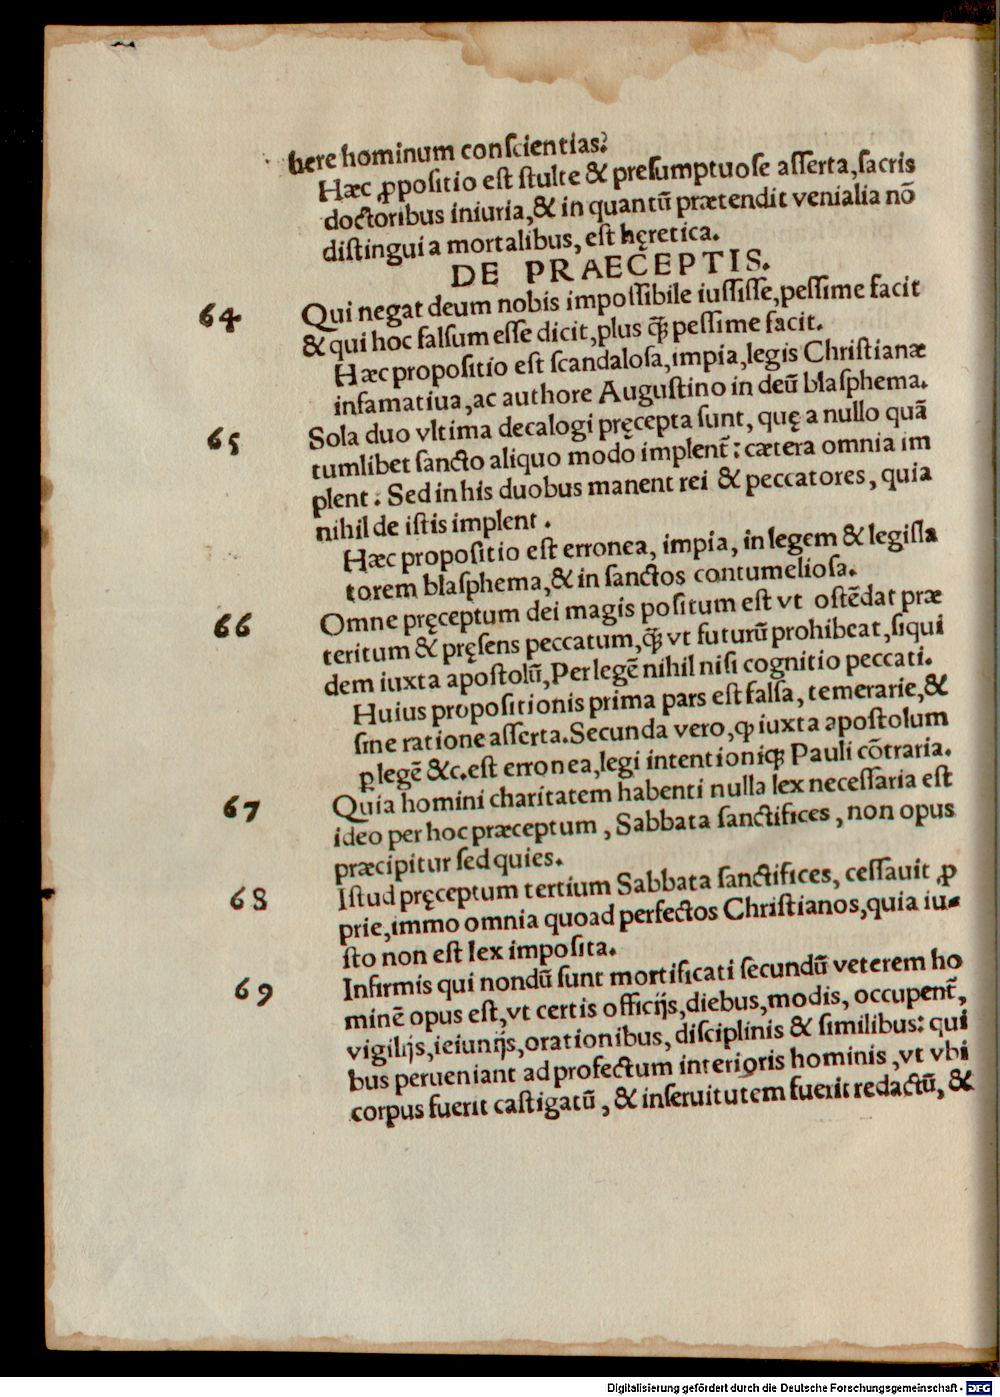 bere hominum conſcientias?
Hæc ꝓpoſitio eſt ſtulte & preſumptuoſe aſſerta,ſacris
doctoribus iniuria,& in quantū prætendit venialia nō
diſtingui a mortalibus, eſt hęretica.
DE PRAECEPTIS.
64 Qui negat deum nobis impoſſibile iuſſiſſe,peſſime facit
& qui hoc falſum eſſe dicit,plus ꝙ̃ peſſime facit.
Hæc propoſitio eſt ſcandaloſa,impia,legis Chriſtianæ
infamatiua,ac authore Auguſtino in deū blaſphema.
65 Sola duo vltima decalogi pręcepta ſunt, quę a nullo quā
tumlibet ſancto aliquo modo implent̃: cætera omnia im
plent : Sed in his duobus manent rei & peccatores, quia
nihil de iſtis implent .
Hæc propoſitio eſt erronea, impia, in legem & legiſla
torem blaſphema,& in ſanctos contumelioſa.
66 Omne pręceptum dei magis poſitum eſt vt oſtēdat præ
teritum & pręſens peccatum,ꝙ̃ vt futurū prohibeat,ſiqui
dem iuxta apoſtolū,Per legē nihil niſi cognitio peccati.
Huius propoſitionis prima pars eſt falſa, temerarie,&
ſine ratione aſſerta.Secunda vero,ꝙ iuxta apoſtolum
ꝑ legē &c.eſt erronea,legi intentioniqꝫ Pauli cōtraria.
67 Quia homini charitatem habenti nulla lex neceſſaria eſt
ideo per hoc præceptum , Sabbata ſanctifices , non opus
præcipitur ſed quies.
68 Iſtud pręceptum tertium Sabbata ſanctifices, ceſſauit ꝓ
prie,immo omnia quoad perfectos Chriſtianos,quia iu-
ſto non eſt lex impoſita.
69 Infirmis qui nondū ſunt mortificati ſecundū veterem ho
minē opus eſt,vt certis officijs,diebus,modis, occupent̃,
vigilijs,ieiunijs,orationibus, diſciplinis & ſimilibus: qui
bus perueniant ad profectum interioris hominis ,vt vbi
corpus fuerit caſtigatū , & inſeruitutem fuerit redactū, &
Digitalisierung gefördert durch die Deutsche Forschungsgemeinschaft - DFG